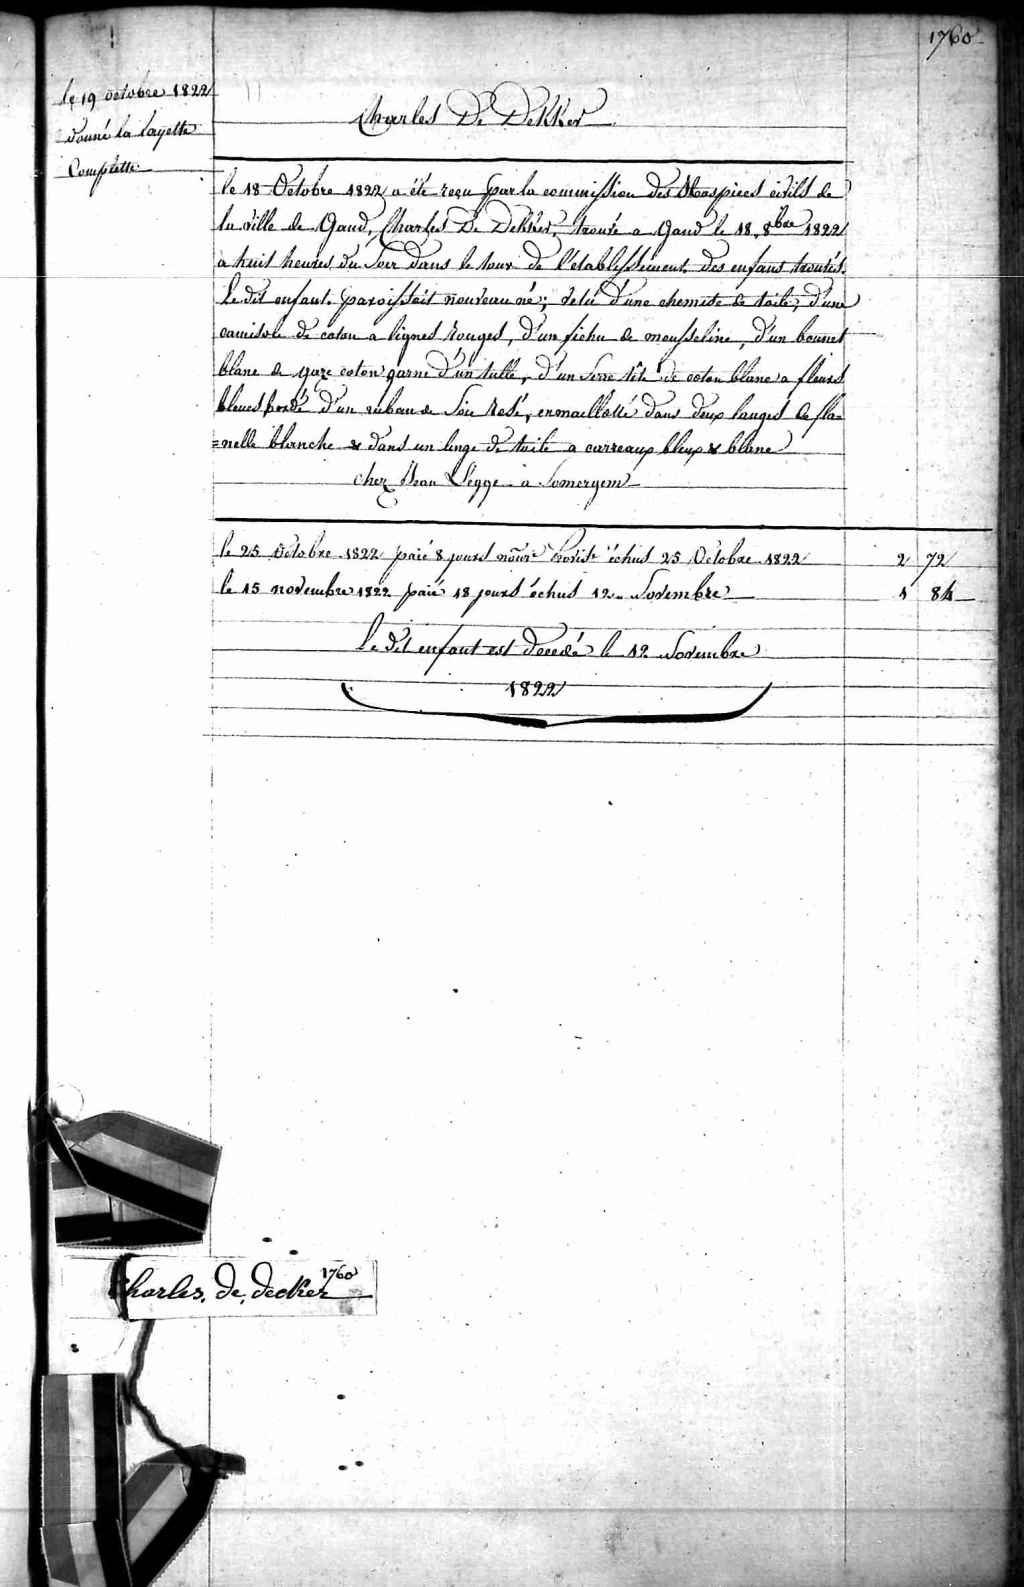 1760
le 19 octobre 1822
donné la layette
Complette
Charles De Dekker
le 18 Octobre 1822 a été reçu par la commission des Hospices civils de
la ville de Gand, Charles De Dekker, trouvé a Gand le 18 8bre 1822
a huit heures du Soir dans le tour de l'établissement des enfans trouvés.
Le dit enfant paroissoit nouveau né; vetû d'une chemise de toile, d'une
camisole de coton a lignes rouges, d'un fichu de mousseline, d'un bonnet
blanc de gaze coton garni d'un tulle, d'un Serre tête de coton blanc a fleurs
bleues bordé d'un ruban de Soie rosé, enmaillotté dans deux langes de fla=
=nelle blanche & dans un linge de toile a carreaux bleux & blanc
chez Jean Dègge a Somergem
le 25 Octobre 1822 paié 8 jours nourre échus 25 Octobre 1822 2 72
le 15 novembre 1822 paié 18 jours échus 12 Novembre 1 84
Le dit enfant est décédé le 12 Novembre
1822
1760
Charles de decker